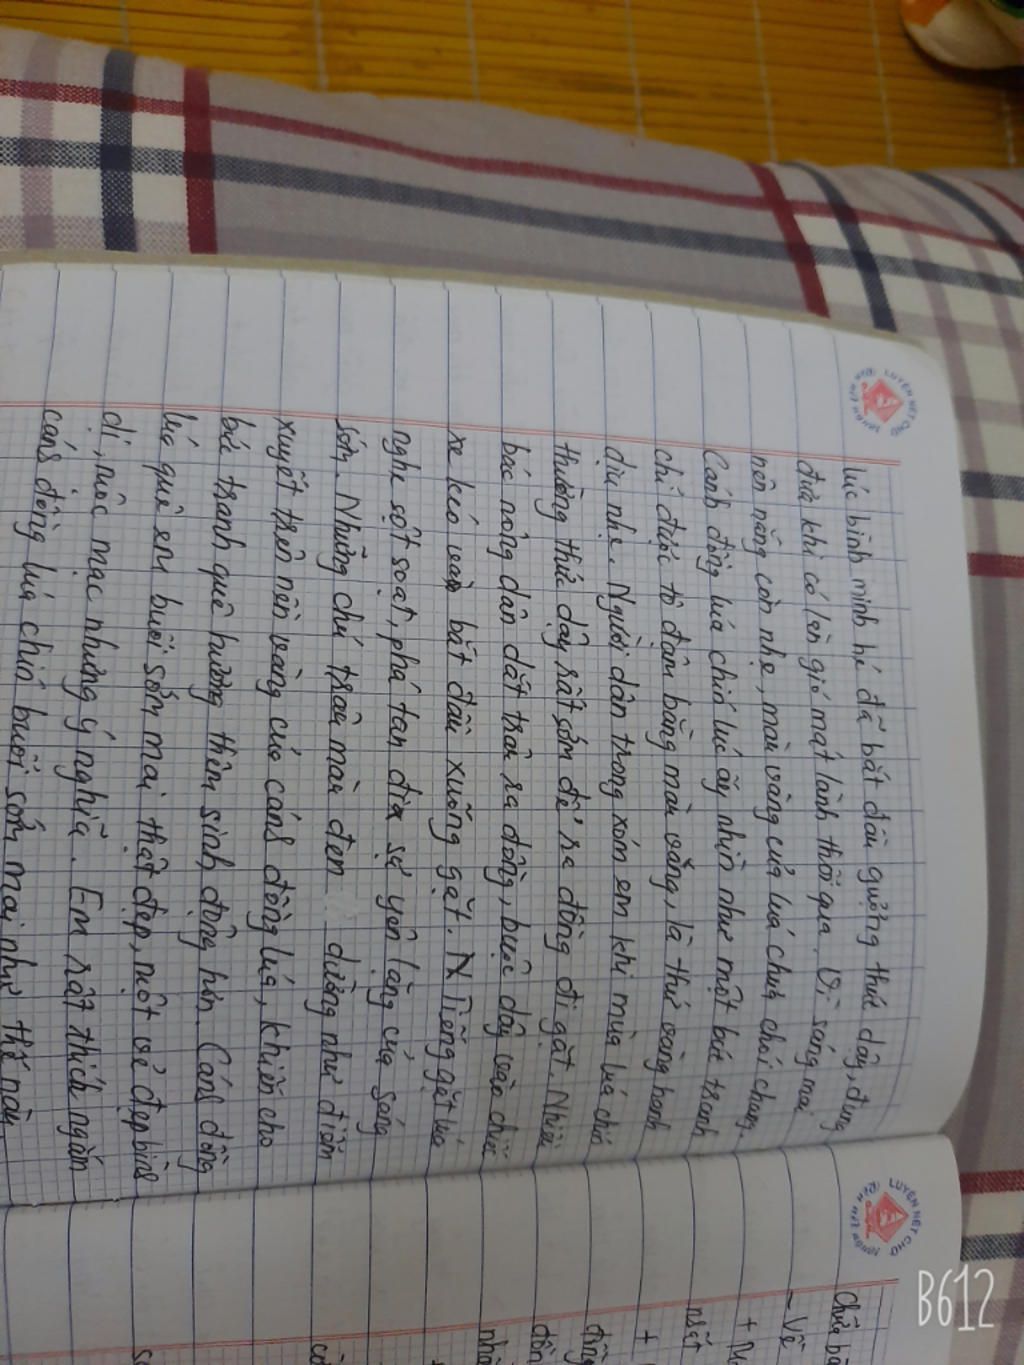 LUYỆN NÉT CHỮ
RÈN NẾT NGƯỜI
lúc bình minh hé đã bắt đầu gượng thức dậy, đung
đưa khi có làn gió mát lành thổi qua. Vì sáng mai
nên nắng còn nhẹ, màu vàng của lúa chưa chói chang.
Cánh đồng lúa chín lúc ấy nhìn như một bức tranh
chỉ được tô đậm bằng màu vàng, là thứ vàng hanh
dịu nhẹ. Người dân trong xóm em khi mùa lúa chín
thường thức dậy rất sớm để ra đồng đi gặt. Nhiều
bác nông dân dắt trâu ra đồng, buộc dây vào chiếc
xe kéo và bắt đầu xuống gặt. Tiếng gặt lúa
nghe sột soạt, phá tan đi sự yên lặng của sáng
sớm. Những chú trâu màu đen dường như điểm
xuyết trên nền vàng của cánh đồng lúa, khiến cho
bức tranh quê hương thêm sinh động hơn. Cánh đồng
lúa quê em buổi sớm mai thật đẹp, một vẻ đẹp bình
dị, mộc mạc nhưng ý nghĩa. Em rất thích ngắm
cánh đồng lúa chín buổi sớm mai như thế này.
LUYỆN NÉT CHỮ
RÈN NẾT NGƯỜI
- Về
+
nhất
+
đồng
đồn
nhà
B612